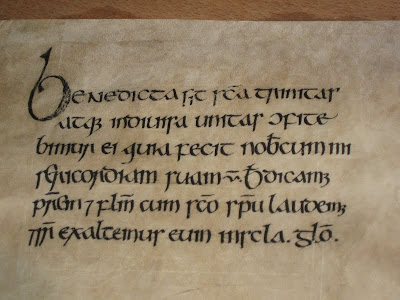 Benedicta sit sc̄a trinitas
atq; indiuisa unitas ɔfite
bimur ei quia fecit nob̄cum mi
sericordiam suam v̄. Bd̄icam;
pr̄em ⁊ fl̄m cum sc̄o sp̄u laudem;
exaltemus eum scla. glō.